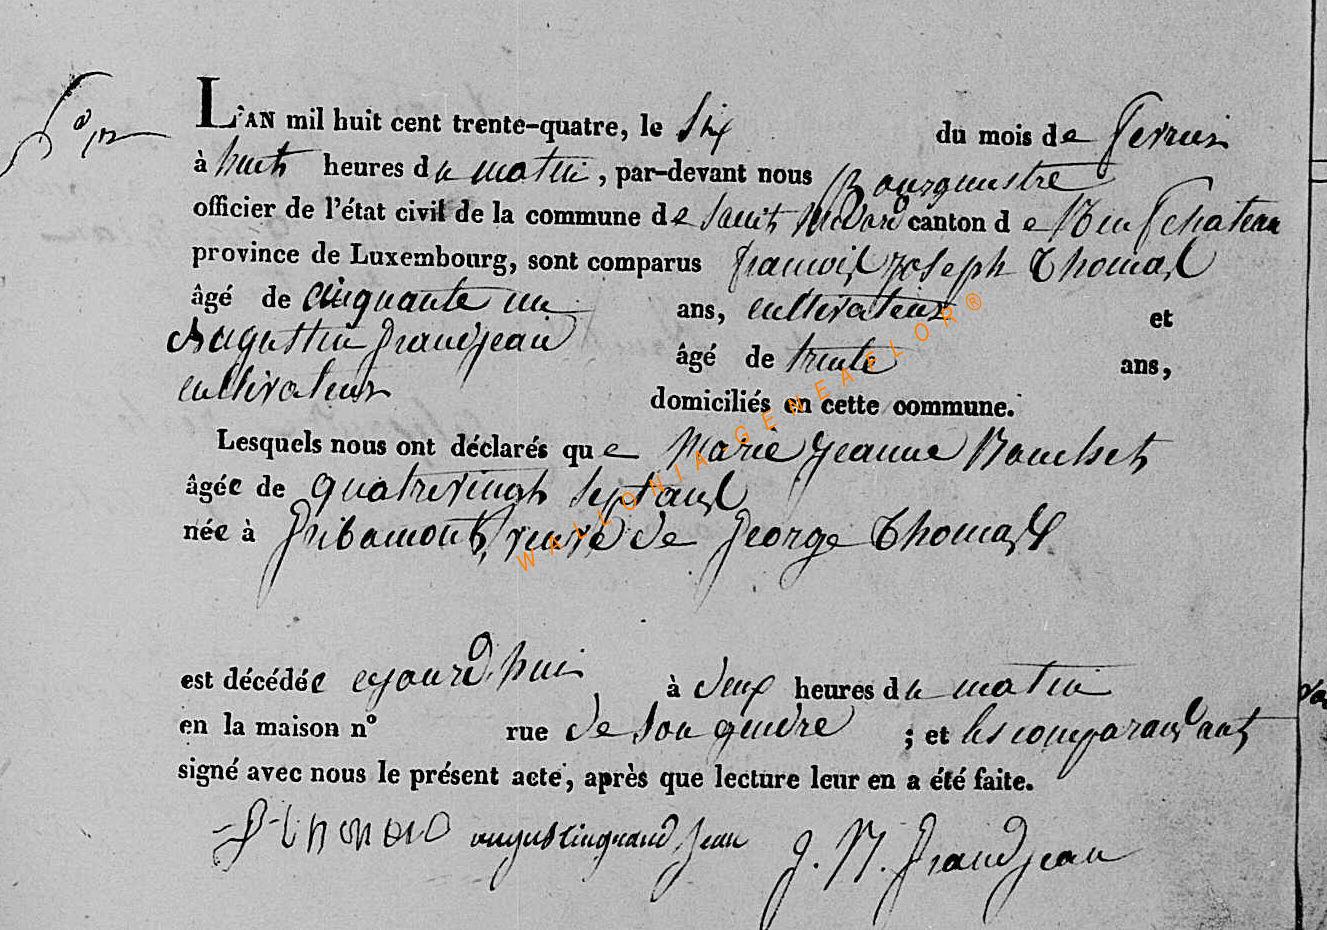 L'AN mil huit cent trente-quatre, le Six du mois de fevrier
à huit heures du matin, par-devant nous Bourgmestre
officier de l'état civil de la commune de Saint Medard canton de Neufchateau
province de Luxembourg, sont comparus françois joseph Thomas
âgé de cinquante un ans, cultivateur et
Augustin grandjean âgé de trente ans,
cultivateur domiciliés en cette commune.
Lesquels nous ont déclarés que Marie jeanne
âgée de quatrevingt sept ans
née à gribamont, veuve de george Thomas
est décédée ajourd'hui à deux heures du matin
en la maison nº rue de son gendre ; et les comparans ont
signé avec nous le présent acte, après que lecture leur en a été faite.
augustin grand jean J. N. Grandjean
WALLONIA GENEAFLOR®